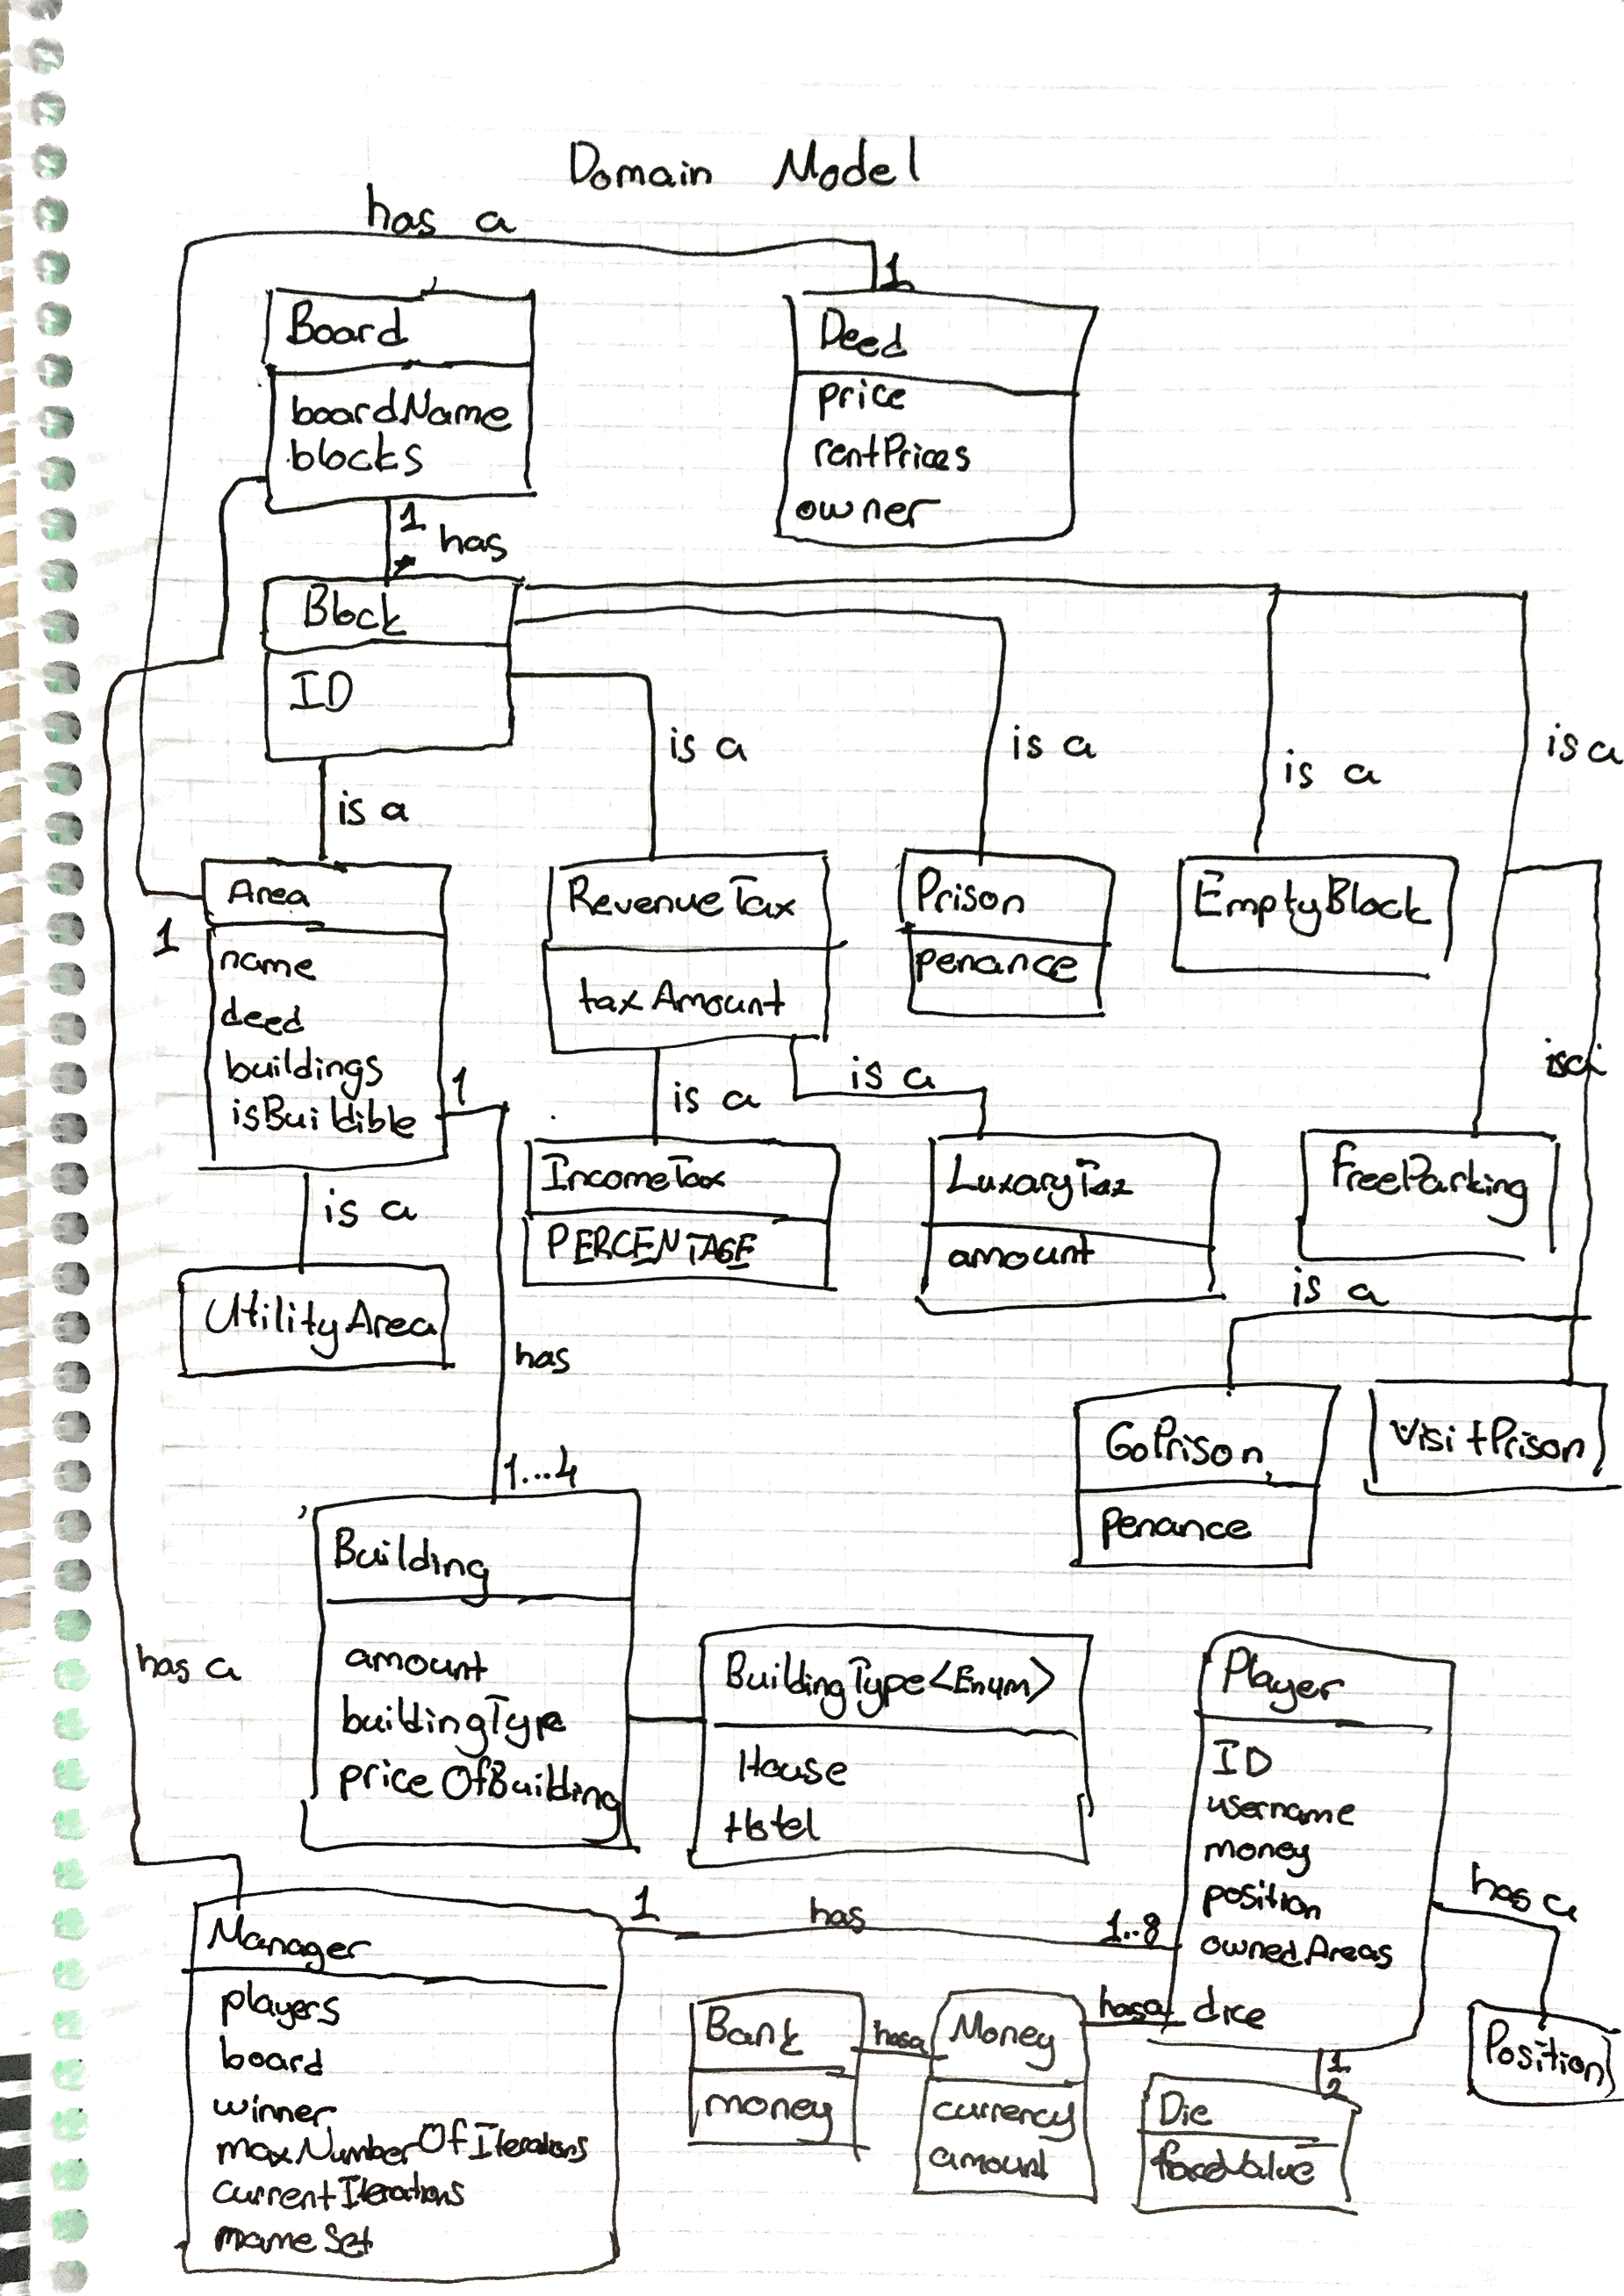 Domain Model
has a
1
Board
boardName
blocks
Deed
price
rentPrices
owner
1
has
*
Block
ID
is a
is a
is a
is a
is a
Area
1
name
deed
buildings
isBuildible
1
RevenueTax
taxAmount
Prison
penance
EmptyBlock
is a
is a
is a
is a
IncomeTax
PERCENTAGE
LuxaryTax
amount
FreeParking
is a
UtilityArea
has
1...4
GoPrison
penance
VisitPrison
Building
amount
buildingType
priceOfBuilding
has a
BuildingType<Enum>
House
Hotel
Player
ID
username
money
position
ownedAreas
dice
has a
Position
1
has
1..8
Manager
players
board
winner
maxNumberOfIterations
currentIterations
Bank
money
has a
Money
currency
amount
has a
1
2
Die
faceValue